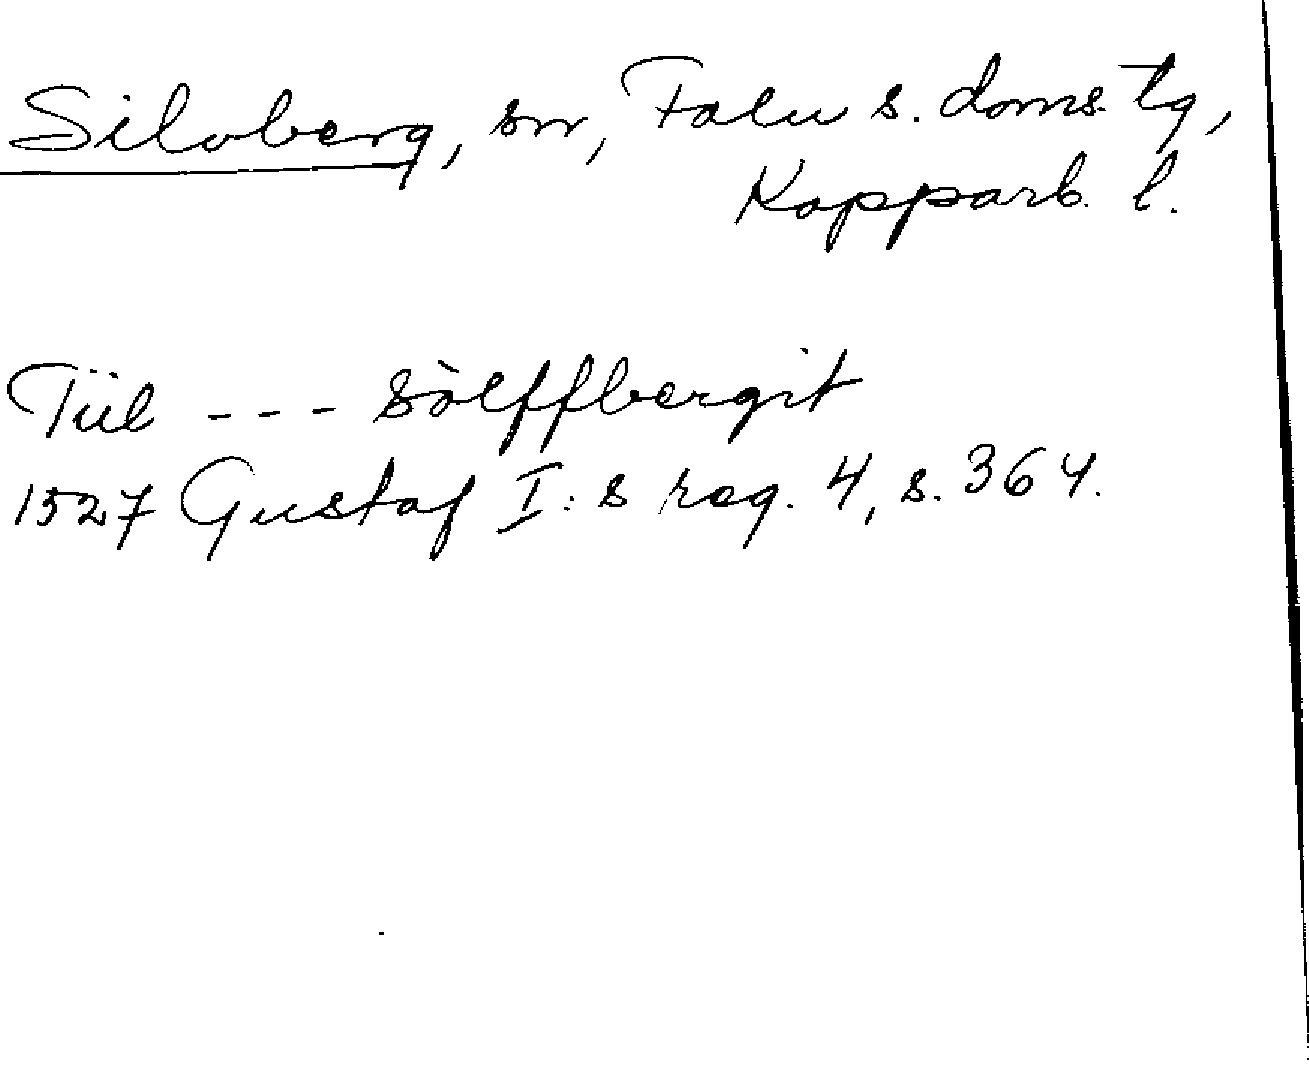 Silvberg, sn, Falu s. doms. tg,
Kopparb. l.
Tiil --- sölffbergit
1527 Gustaf I:s reg. 4, s. 364.